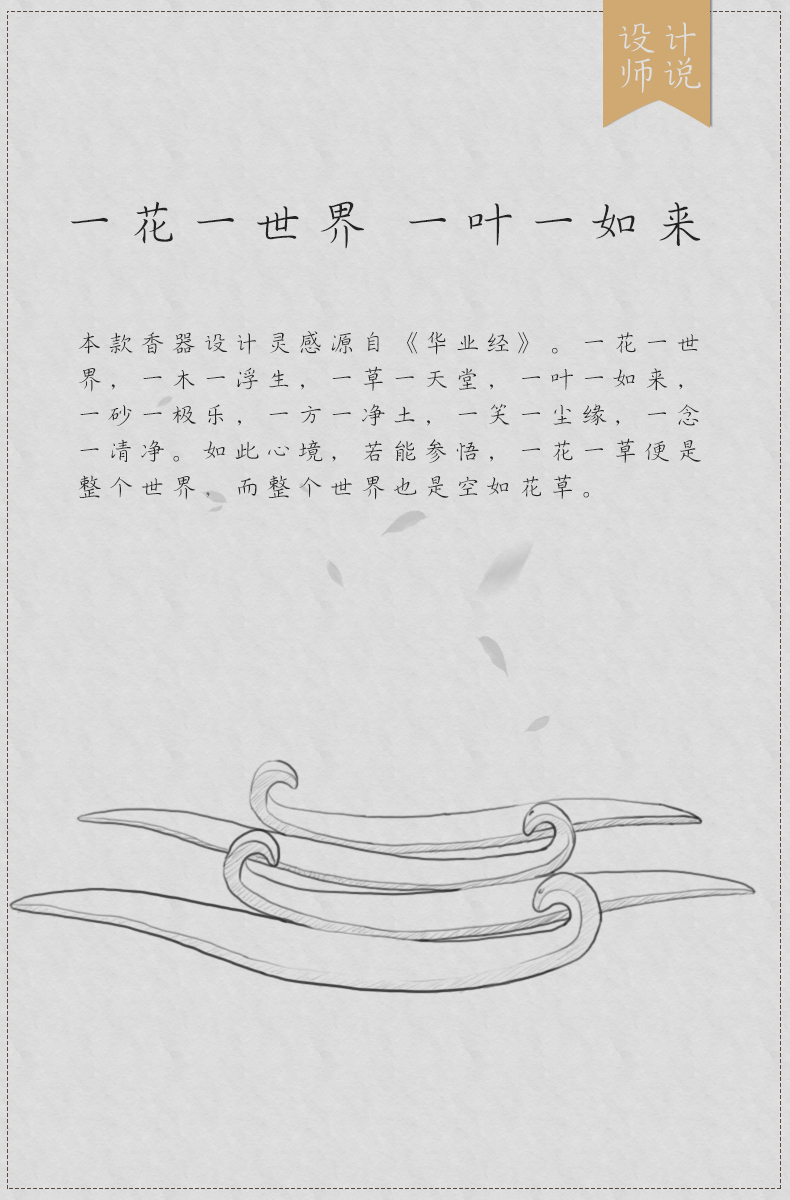 设计
师说
一花一世界 一叶一如来
本款香器设计灵感源自《华业经》。一花一世
界，一木一浮生，一草一天堂，一叶一如来，
一砂一极乐，一方一净土，一笑一尘缘，一念
一清净。如此心境，若能参悟，一花一草便是
整个世界，而整个世界也是空如花草。